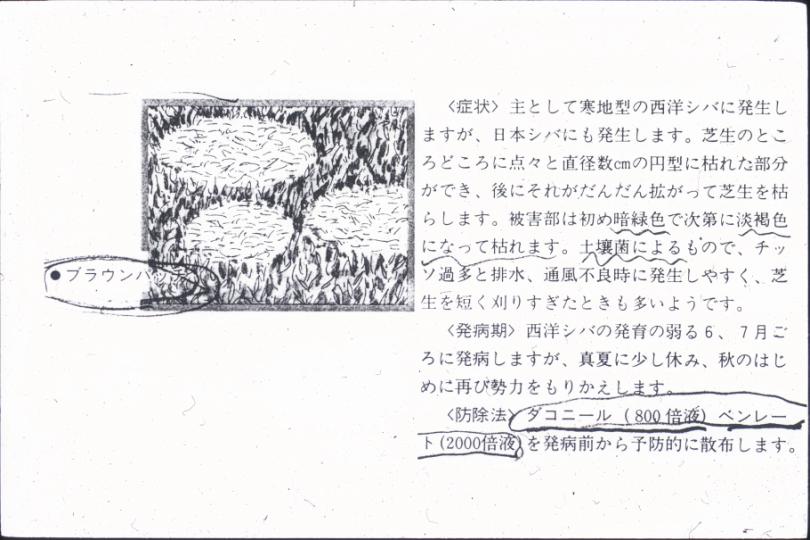 ●ブラウンパッチ
〈症状〉主として寒地型の西洋シバに発生し
ますが、日本シバにも発生します。芝生のとこ
ろどころに点々と直径数cmの円型に枯れた部分
ができ、後にそれがだんだん拡がって芝生を枯
らします。被害部は初め暗緑色で次第に淡褐色
になって枯れます。土壌菌によるもので、チッ
ソ過多と排水、通風不良時に発生しやすく、芝
生を短く刈りすぎたときも多いようです。
〈発病期〉西洋シバの発育の弱る6、7月ご
ろに発病しますが、真夏に少し休み、秋のはじ
めに再び勢力をもりかえします。
〈防除法〉ダコニール(800倍液)ベンレー
ト(2000倍液)を発病前から予防的に散布します。